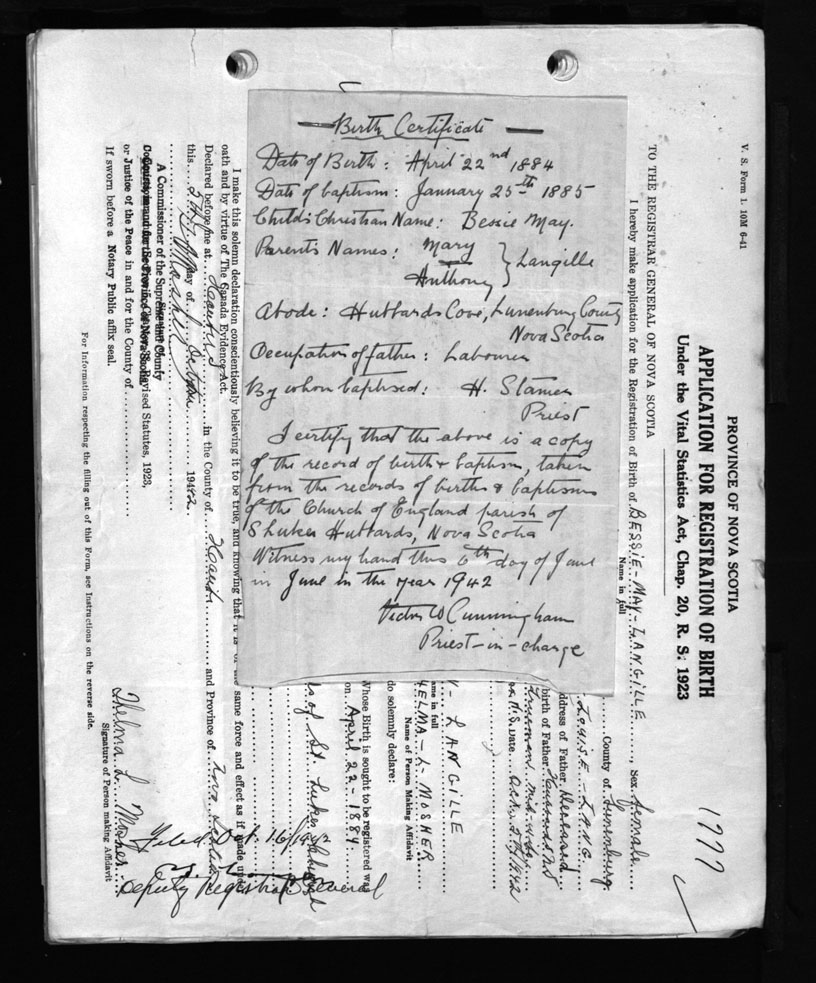 Birth Certificate
Date of Birth: April 22nd 1884
Date of baptism: January 25th 1885
Child's Christian Name: Bessie May.
Parents Names: Mary
Anthony } Langille
Abode: Hubbards Cove, Lunenburg County
Nova Scotia
Occupation of father: Labourer
By whom baptised: H. Stamer
Priest
I certify that the above is a copy
of the record of birth & baptism, taken
from the records of births & baptisms
of the Church of England parish of
St Lukes Hubbards, Nova Scotia
Witness my hand this 6th day of June
in June in the year 1942
Victor W Cunningham
Priest-in-charge
V. S. Form 1. 10M 6-41
PROVINCE OF NOVA SCOTIA
APPLICATION FOR REGISTRATION OF BIRTH
Under the Vital Statistics Act, Chap. 20, R. S. 1923
1777
TO THE REGISTRAR GENERAL OF NOVA SCOTIA
I hereby make application for the Registration of Birth of BESSIE-MAY-LANGILLE, Sex female
Name in full
County of Lunenburg
LOUISE-LANG
address of Father Deceased
birth of Father Hubbards N.S
Date
Y-LANGILLE
ame in full
HELMA-L-MOSHER
Name of Person Making Affidavit
do solemnly declare:
Whose Birth is sought to be registered was
on April 22-1884
of St. Lukes
I make this solemn declaration conscientiously believing it to be true, and knowing that it is of the same force and effect as if made under
oath and by virtue of The Canada Evidence Act.
Declared before me at Hants in the County of Hants and Province of Nova Scotia
this day of 1942
A Commissioner of the Supreme Court
or Justice of the Peace in and for the County of
If sworn before a Notary Public affix seal.
Thelma L. Mosher
Signature of Person making Affidavit
For Information respecting the filling out of this Form, see Instructions on the reverse side.
Filed Oct. 16/1942
Deputy Registrar General